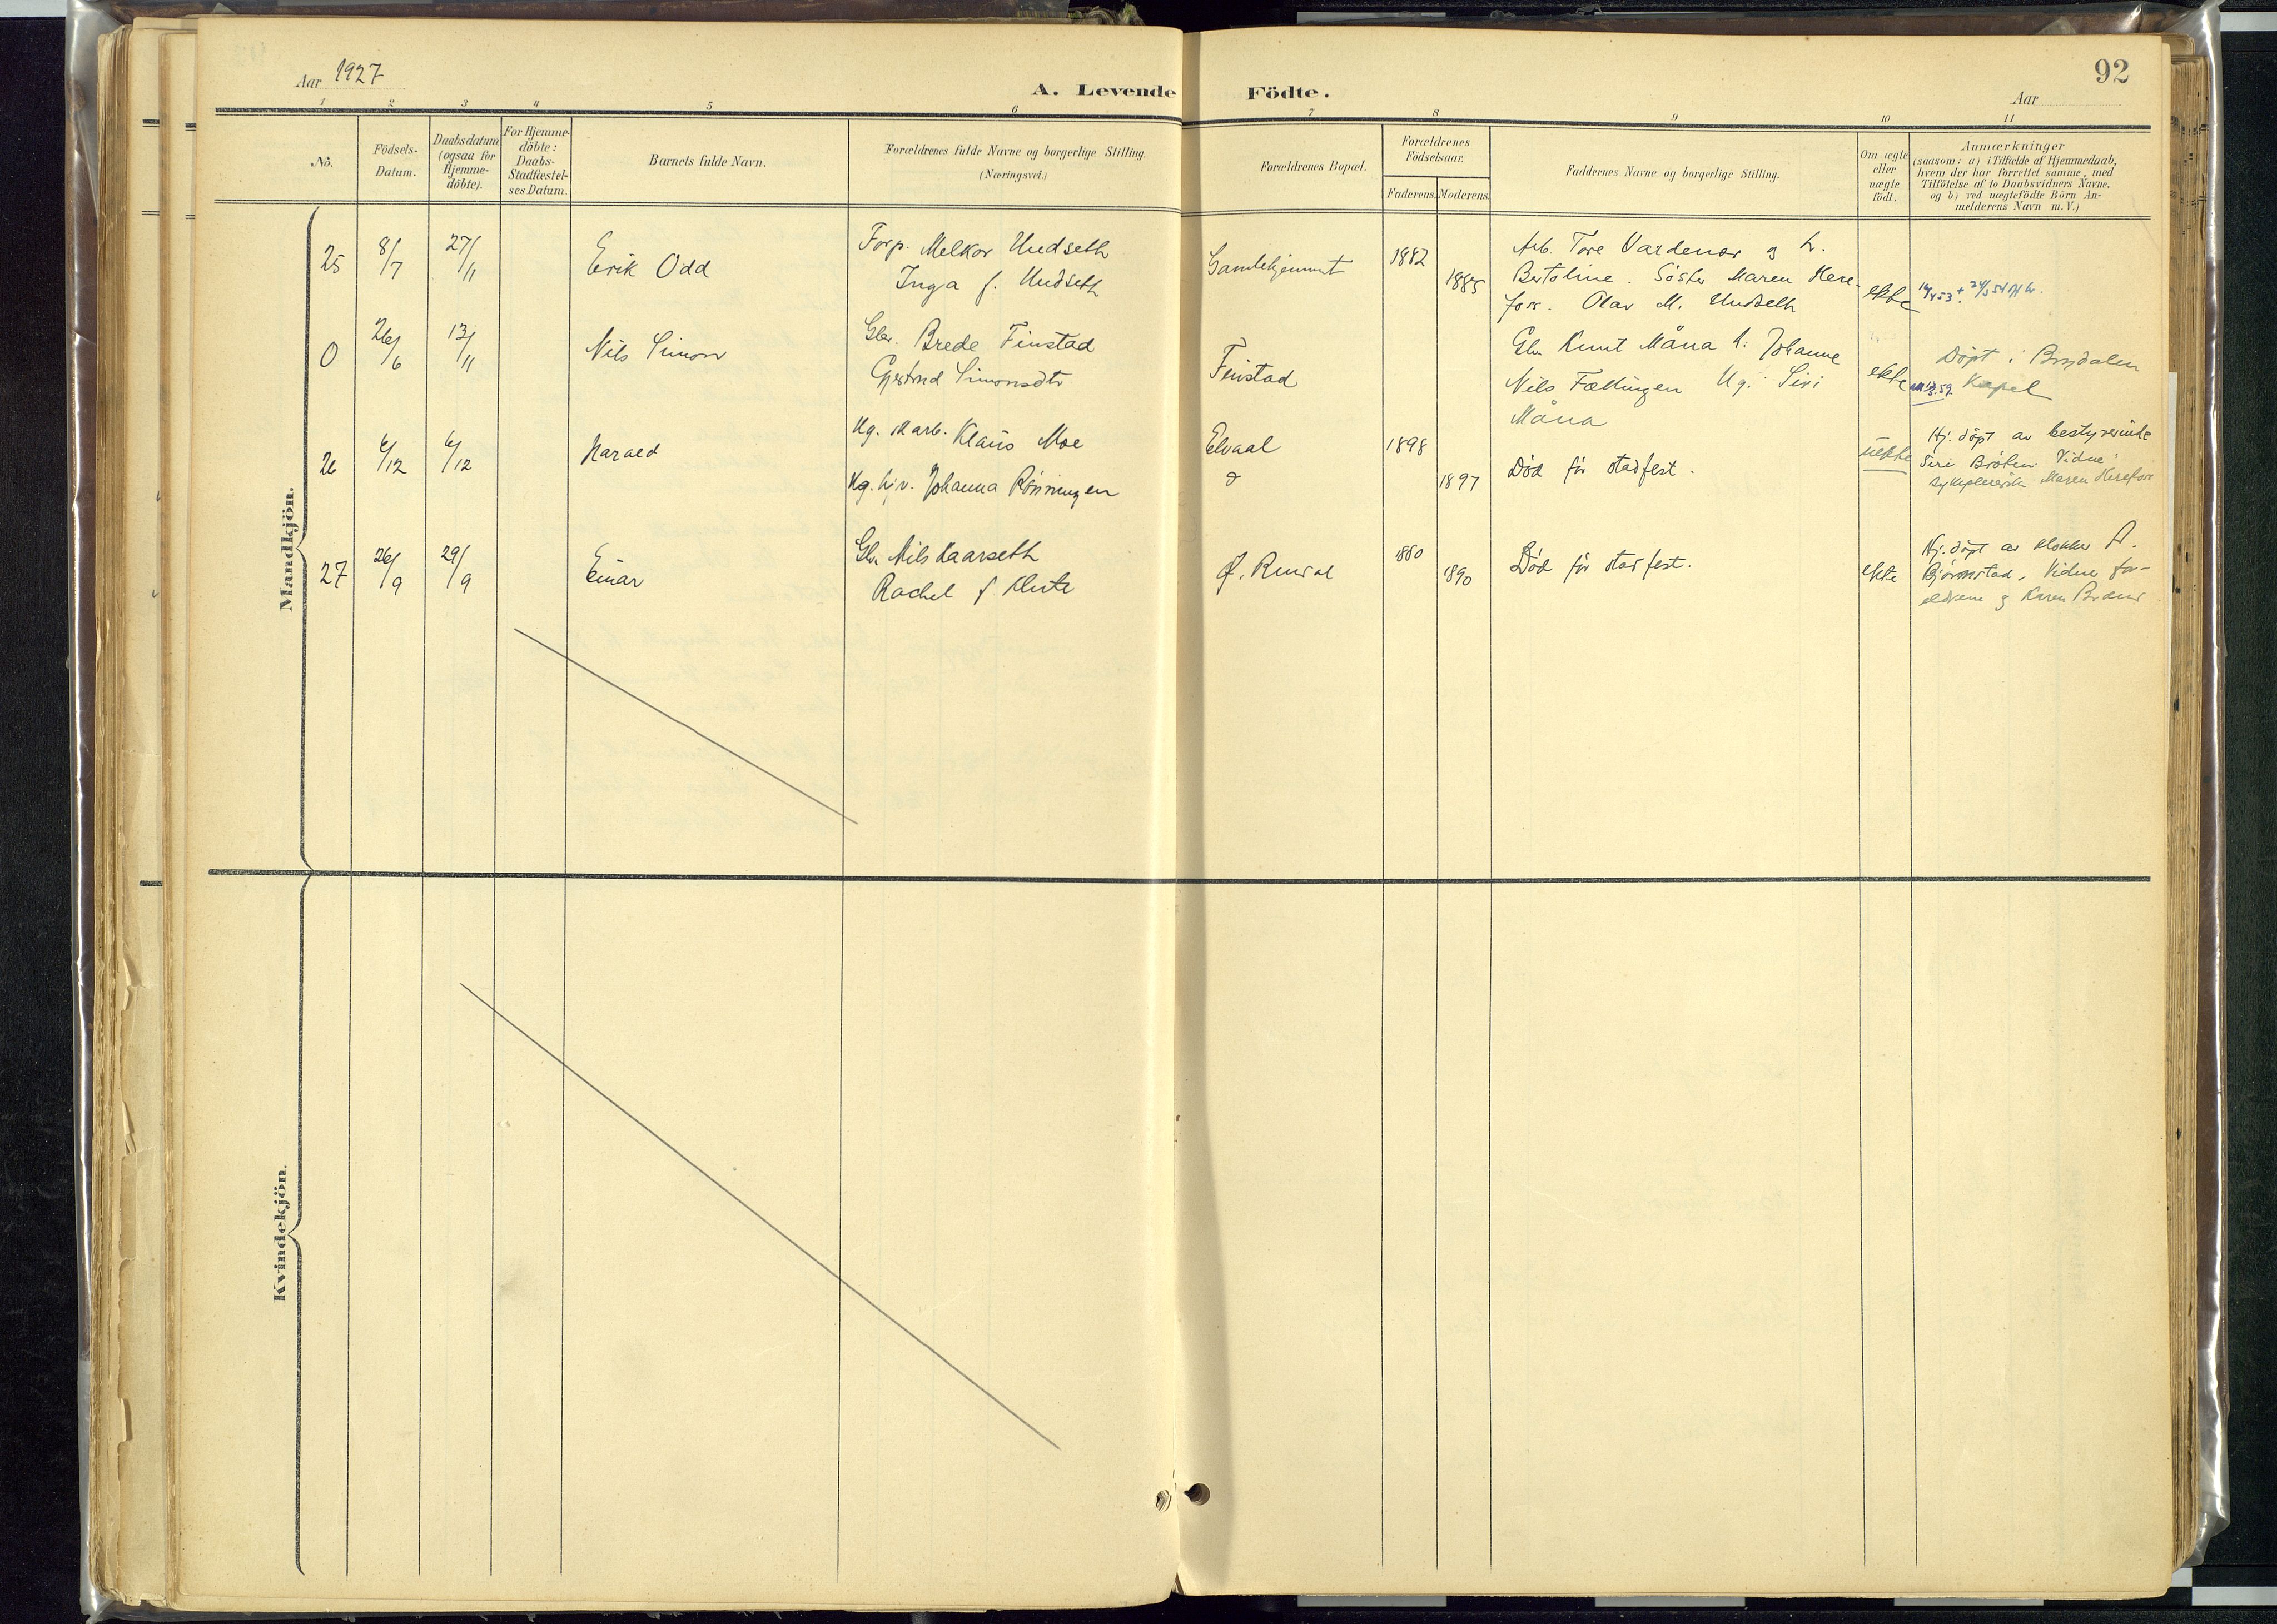 Aar 1927
A. Levende Födte.
92
Aar
1 2 3 4 5 6 7 8 9 10 11
No.
Födsels-
Datum.
Daabsdatum
(ogsaa for
Hjemme-
döbte).
For Hjemme-
döbte:
Daabs-
Stadfæstel-
ses Datum.
Barnets fulde Navn.
Forældrenes fulde Navne og borgerlige Stilling.
(Næringsvei.)
Forældrenes Bopæl.
Forældrenes
Födselsaar.
Faderens. Moderens.
Faddernes Navne og borgerlige Stilling.
Om ægte
eller
uægte
födt.
Anmærkninger
(saasom: a) i Tilfælde af Hjemmedaab,
hvem der har forrettet samme, med
Tilföielse af to Daabsvidners Navne.
og b) ved uægtefödte Börn An-
melderens Navn m. V.)
Mandkjön.
25 8/7 27/11 Erik Odd
Forp. Melkor Undseth
Inga f. Undseth
Gamlehjemmet 1882
1885
Arb. Tore Vardenær og h.
Bertoline. Søster Maren Here-
forr. Olav M. Undseth
ekte
0 26/6 13/11 Nils Simon
Gbr. Brede Finstad
Gjertrud Simonsdtr
Finstad
Gbr Knut Måna h. Johanne
Nils Fællingen Ug. Siri
Måna
ekte
Döpt i Brydalen
Kapel
26 6/12 6/12 Harald
Ug. skarb. Klaus Moe
Ug. hjv. Johanna Rönningen
Elvaal 1898
1897
Död för stadfest.
uekte
Hj. döpt av bestyrerinde
Siri Bröten. Vidne:
sykepleiersk Maren Hereforr
27 26/9 29/9 Einar
Gbr. Nils Kaarseth
Rachel f
Ø. Rendal 1880
1890
Död för stadfest.
ekte
Hj. döpt av klokker A.
Björnstad, Vidne for-
eldrene og Karen
Kvindekjön.